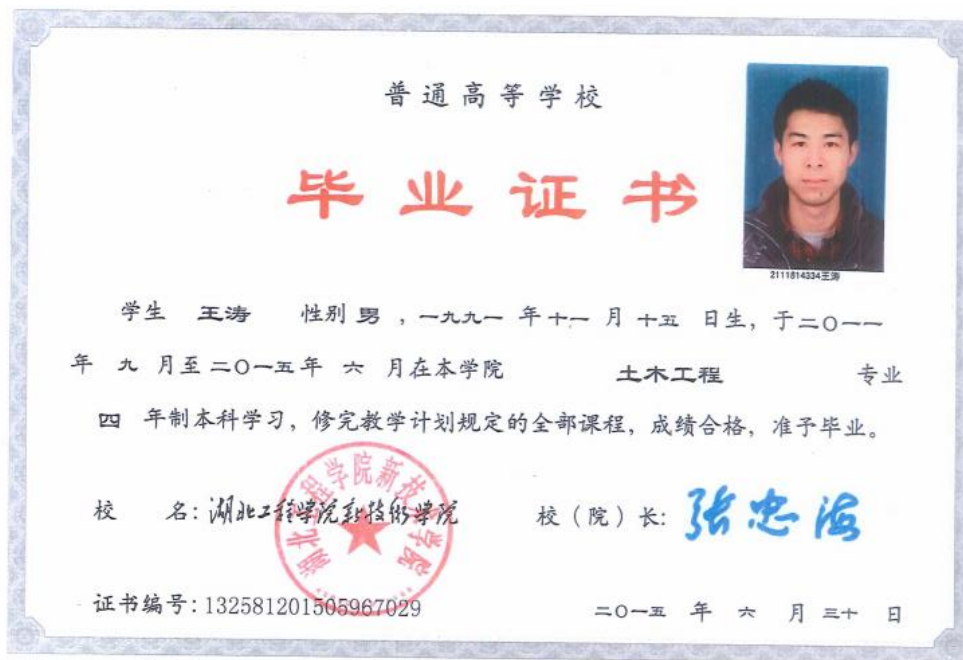 普通高等学校
毕业证书
2111814334王涛
学生 王涛 性别 男 ，一九九一 年 十一 月 十五 日生，于二〇一一
年 九 月至 二〇一五 年 六 月在本学院 土木工程 专业
四 年制本科学习，修完教学计划规定的全部课程，成绩合格，准予毕业。
湖北工程学院新技术学院
校 名：湖北工程学院新技术学院 校（院）长：张忠海
证书编号：132581201505967029 二〇一五 年 六 月 三十 日